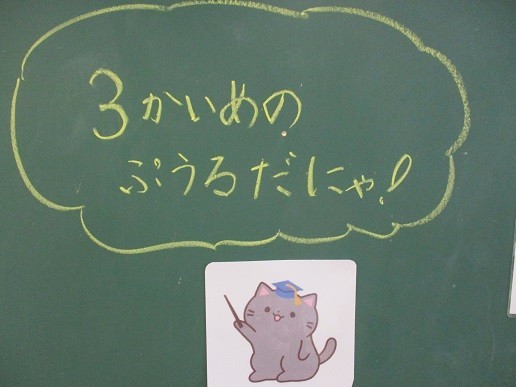 3かいめの
ぷうるだにゃ!